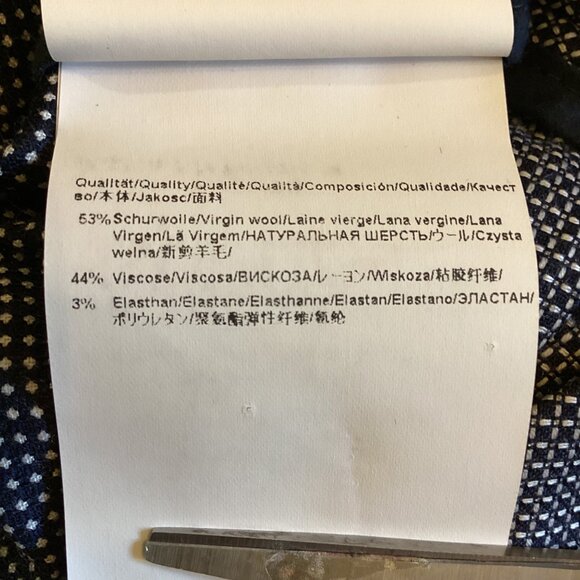 Qualität/Quality/Qualité/Qualità/Composición/Qualidade/Качест
во/本体/Jakość/面料
53% Schurwolle/Virgin wool/Laine vierge/Lana vergine/Lana
Virgen/Lã Virgem/НАТУРАЛЬНАЯ ШЕРСТЬ/ウール/Czysta
wełna/新剪羊毛/
44% Viscose/Viscosa/ВИСКОЗА/レーヨン/Wiskoza/粘胶纤维/
3% Elasthan/Elastane/Elasthanne/Elastan/Elastano/ЭЛАСТАН/
ポリウレタン/聚氨酯弹性纤维/氨纶